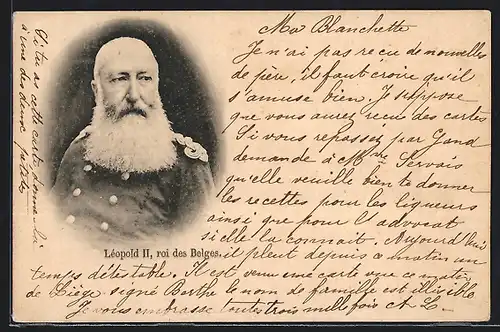 Ma Blanchette
Je n'ai pas reçu de nouvelles
de père, il faut croire qu'il
s'amuse bien. Je suppose
que vous aurez recu des cartes
Si vous repassez par Gand
demande à Mme Servais
qu'elle veuille bien te donner
les recettes pour les liqueurs
ainsi que pour l'advocat
si elle la connait. Aujourd'hui
il pleut depuis ce matin un
temps détestable. Il est venu une carte vue ce matin
de Liège signé Berthe le nom de famille est illisible
Je vous embrasse toutes trois mille fois A. L.
Léopold II, roi des Belges.
Si tu as cette carte donne-la
à une des deux petites